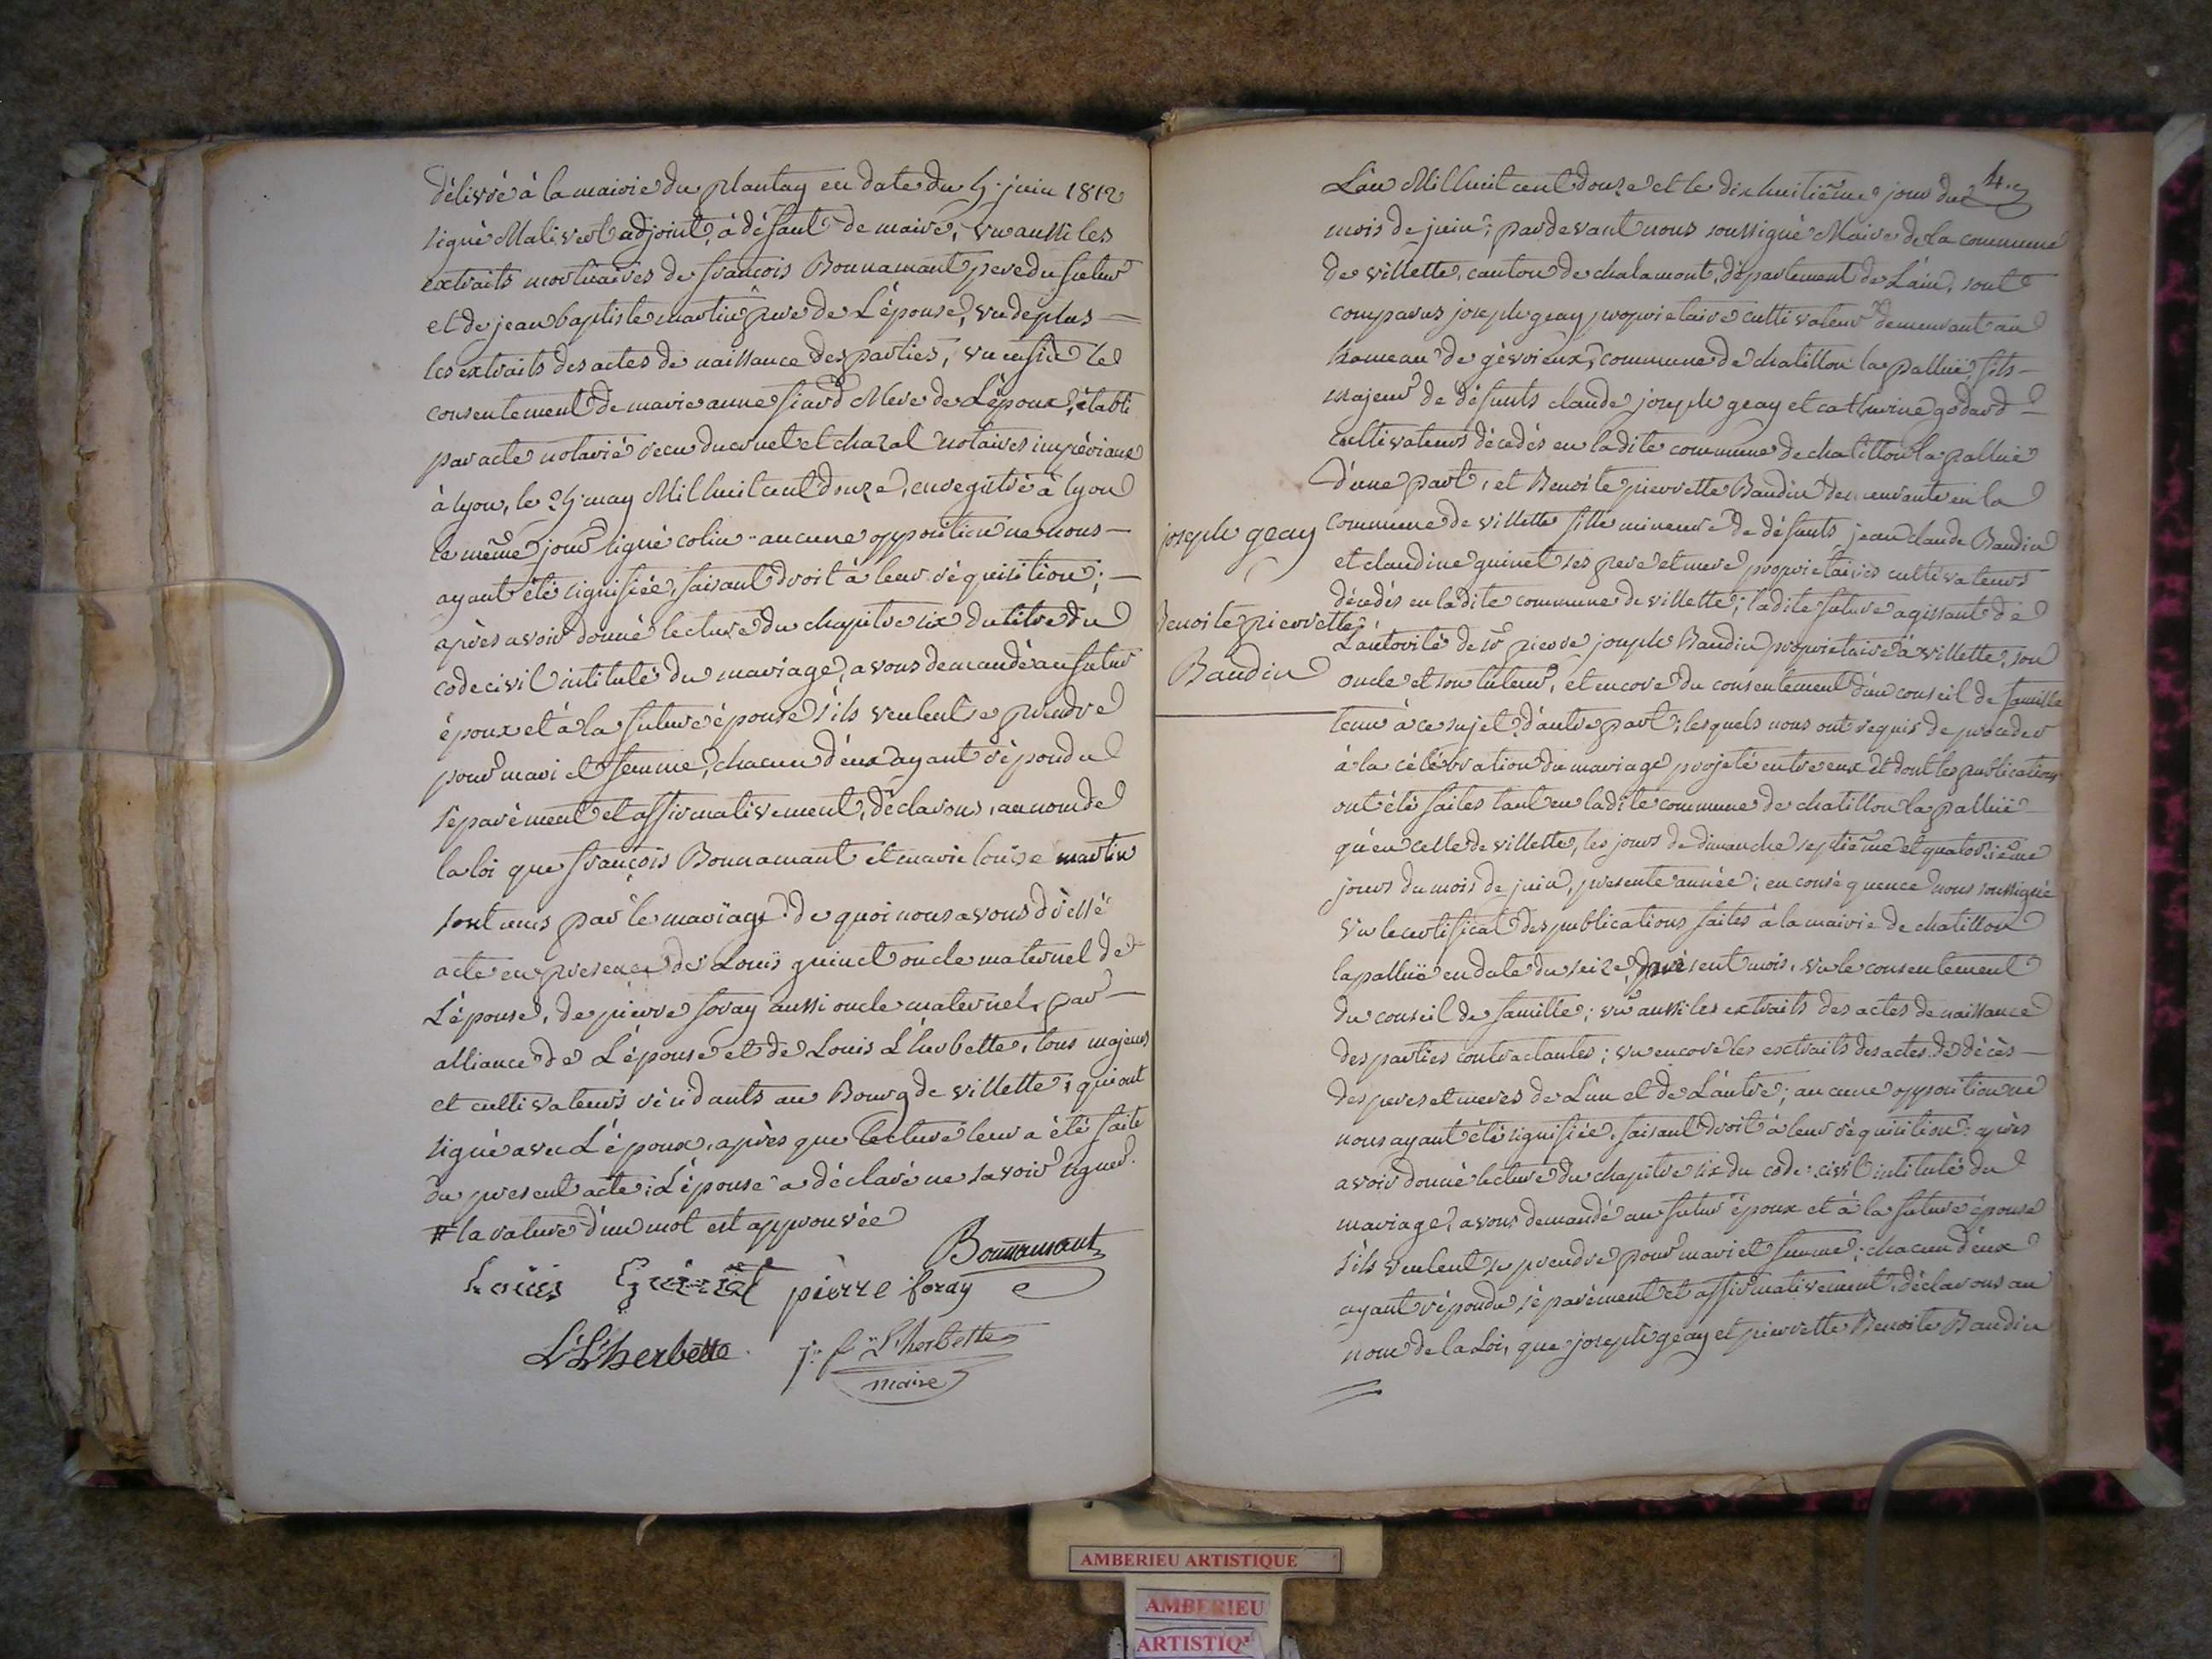 délivré à la mairie du plantay en date du 4 juin 1812
signé Malivert adjoint, à défaut de maire, vu aussi les
extraits mortuaires de francois Bonnamant pere du futur
et de jean baptiste martin pere de L'épouse, vu de plus —
les extraits des actes de naissance des parties, vu enfin le
consentement de marie anne fiard Mere de L'époux, établi
par acte notarié recu ducruet et chazal notaires impériaux
à lyon, le 24 may Mil huit cent douze, enregistré à lyon
le même jour signé colin. aucune opposition ne nous —
ayant été signifiée, faisant droit à leur réquisition; —
après avoir donné lecture du chapitre six du titre du
code civil intitulé du mariage, avons demandé au futur
époux et à la future épouse s'ils veulent se prendre
pour mari et femme, chacun d'eux ayant répondu
séparément et affirmativement, déclarons, au nom de
la loi que françois Bonnamant et marie louise martin
sont unis par le mariage. de quoi nous avons dressé
acte en presence de Louis guinet oncle maternel de
L'épouse, de pierre foray aussi oncle maternel par —
alliance de L'épouse et de Louis L'herbette, tous majeurs
et cultivateurs résidants au Bourg de villette, qui ont
signé avec L'époux, après que lecture leur a été faite
du present acte; L'épouse a déclaré ne savoir signer.
# la rature d'un mot est approuvée
Bonnamant
Loüis Guinet pierre foray
L L'herbette. L'herbette
maire
4.e
L'an Mil huit cent douze et le dix huitième jour du
mois de juin; pardevant nous soussigné Maire de la commune
de villette, canton de chalamont, département de L'ain, sont
comparus joseph geay propriétaire cultivateur demeurant au
hameau de gévrieux, commune de chatillon la palluë, fils —
majeur de défunts claude joseph geay et catherine godard —
cultivateurs décédés en ladite commune de chatillon la palluë
D'une part, et Benoite pierrette Baudin demeurante en la
commune de villette fille mineure de défunts jean claude Baudin
et claudine guinet ses pere et mere propriétaires cultivateurs
décédés en ladite commune de villette; ladite future agissant de
L'autorité de sr pierre joseph Baudin propriétaire à villette, son
oncle et son tuteur, et encore du consentement d'un conseil de famille
tenu à ce sujet, d'autre part; lesquels nous ont requis de proceder
à la célébration du mariage projeté entre eux et dont les publications
ont été faites tant en ladite commune de chatillon la palluë —
qu'en celle de villette, les jours de dimanche septième et quatorzième
jours du mois de juin, presente année; en conséquence nous soussigné
vu le certificat des publications faites à la mairie de chatillon
la palluë en date du seize présent mois, vu le consentement
du conseil de famille; vu aussi les extraits des actes de naissance
des parties contractantes; vu encore les exctraits des actes de décès —
des peres et meres de L'un et de L'autre; aucune opposition ne
nous ayant été signifiée, faisant droit à leur réquisition: après
avoir donné lecture du chapitre six du code civil intitulé du
mariage, avons demandé au futur époux et à la future épouse
s'ils veulent se prendre pour mari et femme; chacun d'eux
ayant répondu séparément et affirmativement, déclarons au
nom de la Loi, que joseph geay et pierrette Benoite Baudin
joseph geay
Benoite pierrette
Baudin
AMBERIEU ARTISTIQUE
AMBERIEU
ARTISTIQ